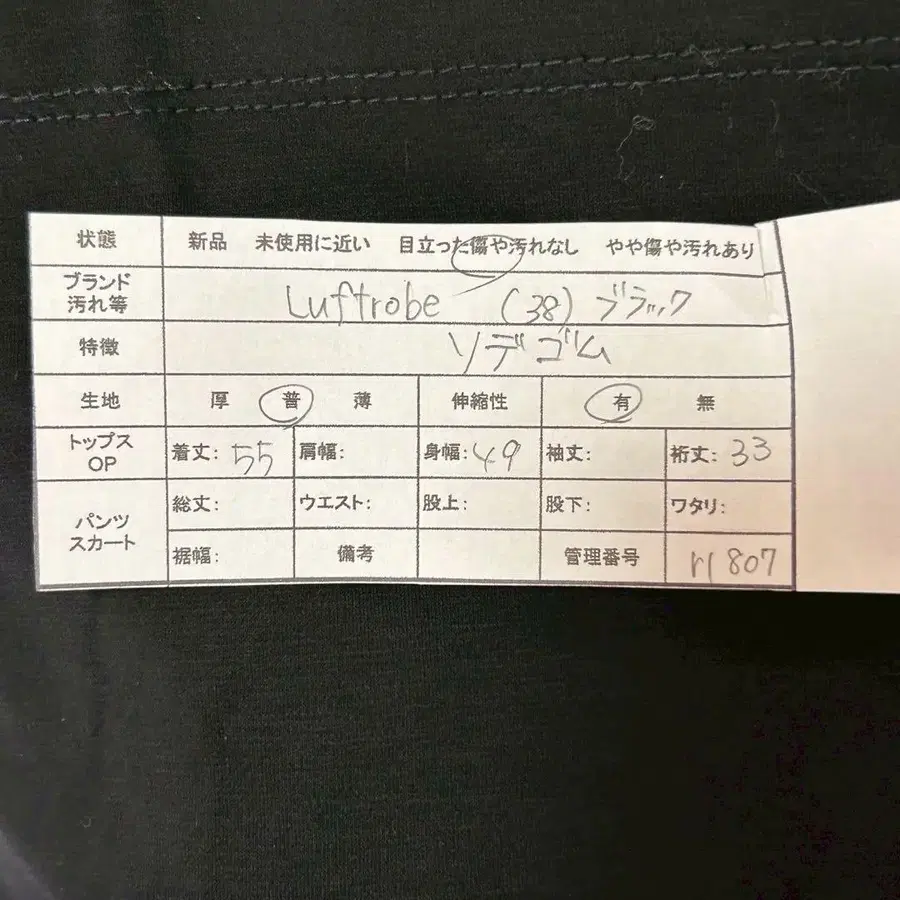 状態 新品 未使用に近い 目立った傷や汚れなし やや傷や汚れあり
ブランド
汚れ等 Luftrobe (38) ブラック
特徴 ソデゴム
生地 厚 普 薄 伸縮性 有 無
トップス
OP 着丈: 55 肩幅: 身幅: 49 袖丈: 裄丈: 33
パンツ
スカート 総丈: ウエスト: 股上: 股下: ワタリ:
裾幅: 備考 管理番号 r1807